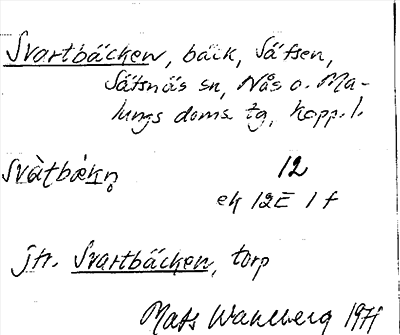 Svartbäcken, bäck, Säfsen,
Säfsnäs sn, Nås o. Ma-
lungs doms. tg, Kopp. l.
svàtbækn̥ 12
ek 12E 1 f
jfr. Svartbäcken, torp
Mats Wahlberg